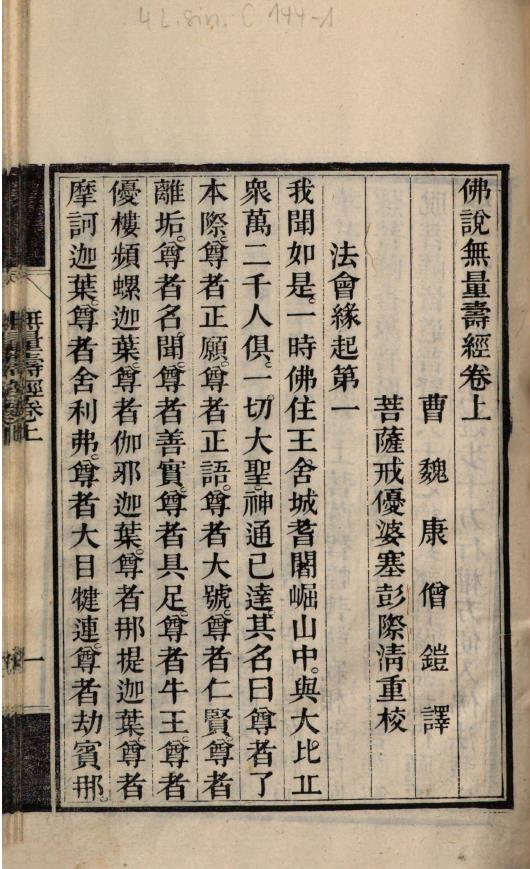 4 L. sin. C 144-1
佛說無量壽經卷上
曹魏康僧鎧譯
菩薩戒優婆塞彭際清重校
法會緣起第一
我聞如是。一時佛住王舍城耆闍崛山中。與大比丘
衆萬二千人俱。一切大聖神通已達。其名曰尊者了
本際。尊者正願。尊者正語。尊者大號。尊者仁賢。尊者
離垢。尊者名聞。尊者善實。尊者具足。尊者牛王。尊者
優樓頻螺迦葉。尊者伽邪迦葉。尊者那提迦葉。尊者
摩訶迦葉。尊者舍利弗。尊者大目犍連。尊者劫賓那。
無量壽經卷上
一